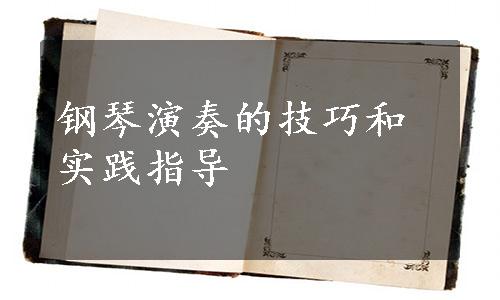 钢琴演奏的技巧和
实践指导